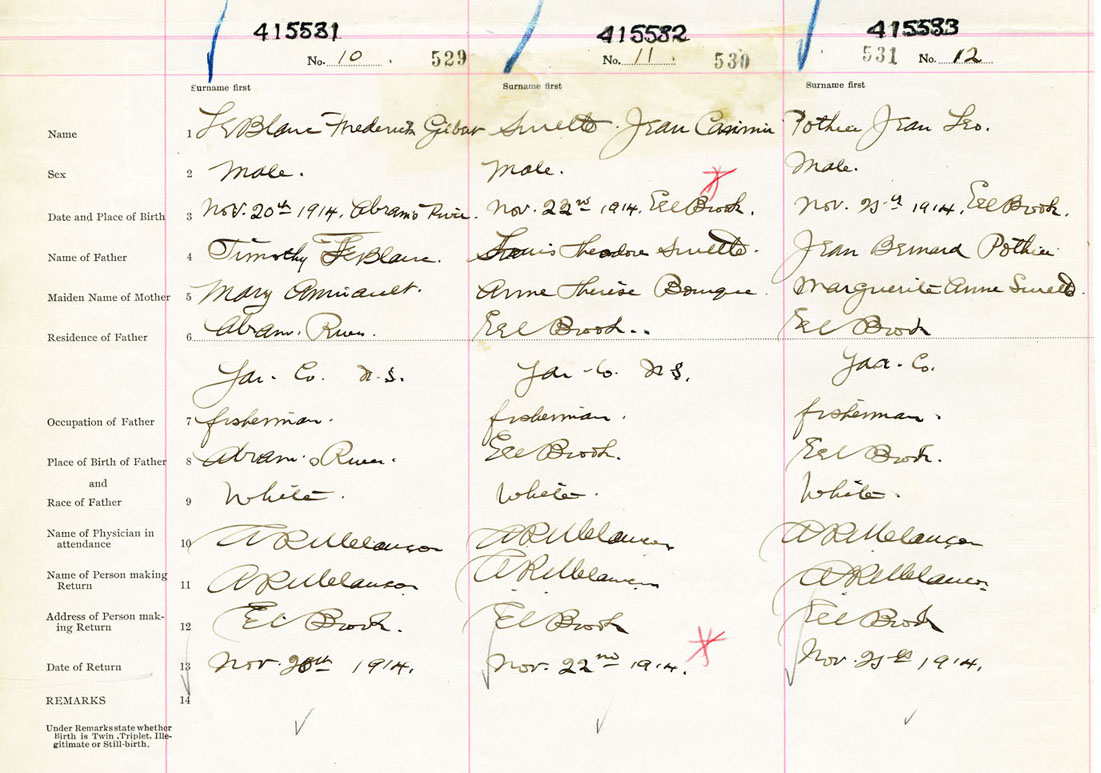 415531 415532 415533
No. 10 529 No. 11. 530 531 No. 12
Surname first Surname first Surname first
Name 1 LeBlanc Frederick Gilbert Surette Jean Casimir Pothier Jean Leo.
Sex 2 Male. Male. Male.
Date and Place of Birth 3 Nov. 20th 1914. Abrams River. Nov. 22nd 1914, Eel Brook. Nov. 25th 1914, Eel Brook.
Name of Father 4 Timothy LeBlanc. Louis Theodore Surette. Jean Bernard Pothier
Maiden Name of Mother 5 Mary Amirault. Anne Therèse Bourque. Marguerite Anne Surette.
Residence of Father 6 Abram. River. Eel Brook.. Eel Brook
Yar. Co. N.S. Yar. Co. N.S. Yar. Co.
Occupation of Father 7 fisherman. fisherman. fisherman.
Place of Birth of Father 8 Abram. River. Eel Brook. Eel Brook.
and
Race of Father 9 White. White. White.
Name of Physician in
attendance 10 A R Melançon A R Melançon A R Melançon
Name of Person making
Return 11 A R Melançon A R Melançon A R Melançon
Address of Person mak-
ing Return 12 Eel Brook. Eel Brook Eel Brook
Date of Return 13 Nov. 20th 1914. Nov. 22nd 1914. Nov. 25th 1914.
REMARKS 14
Under Remarks state whether
Birth is Twin, Triplet, Ille-
gitimate or Still-birth.